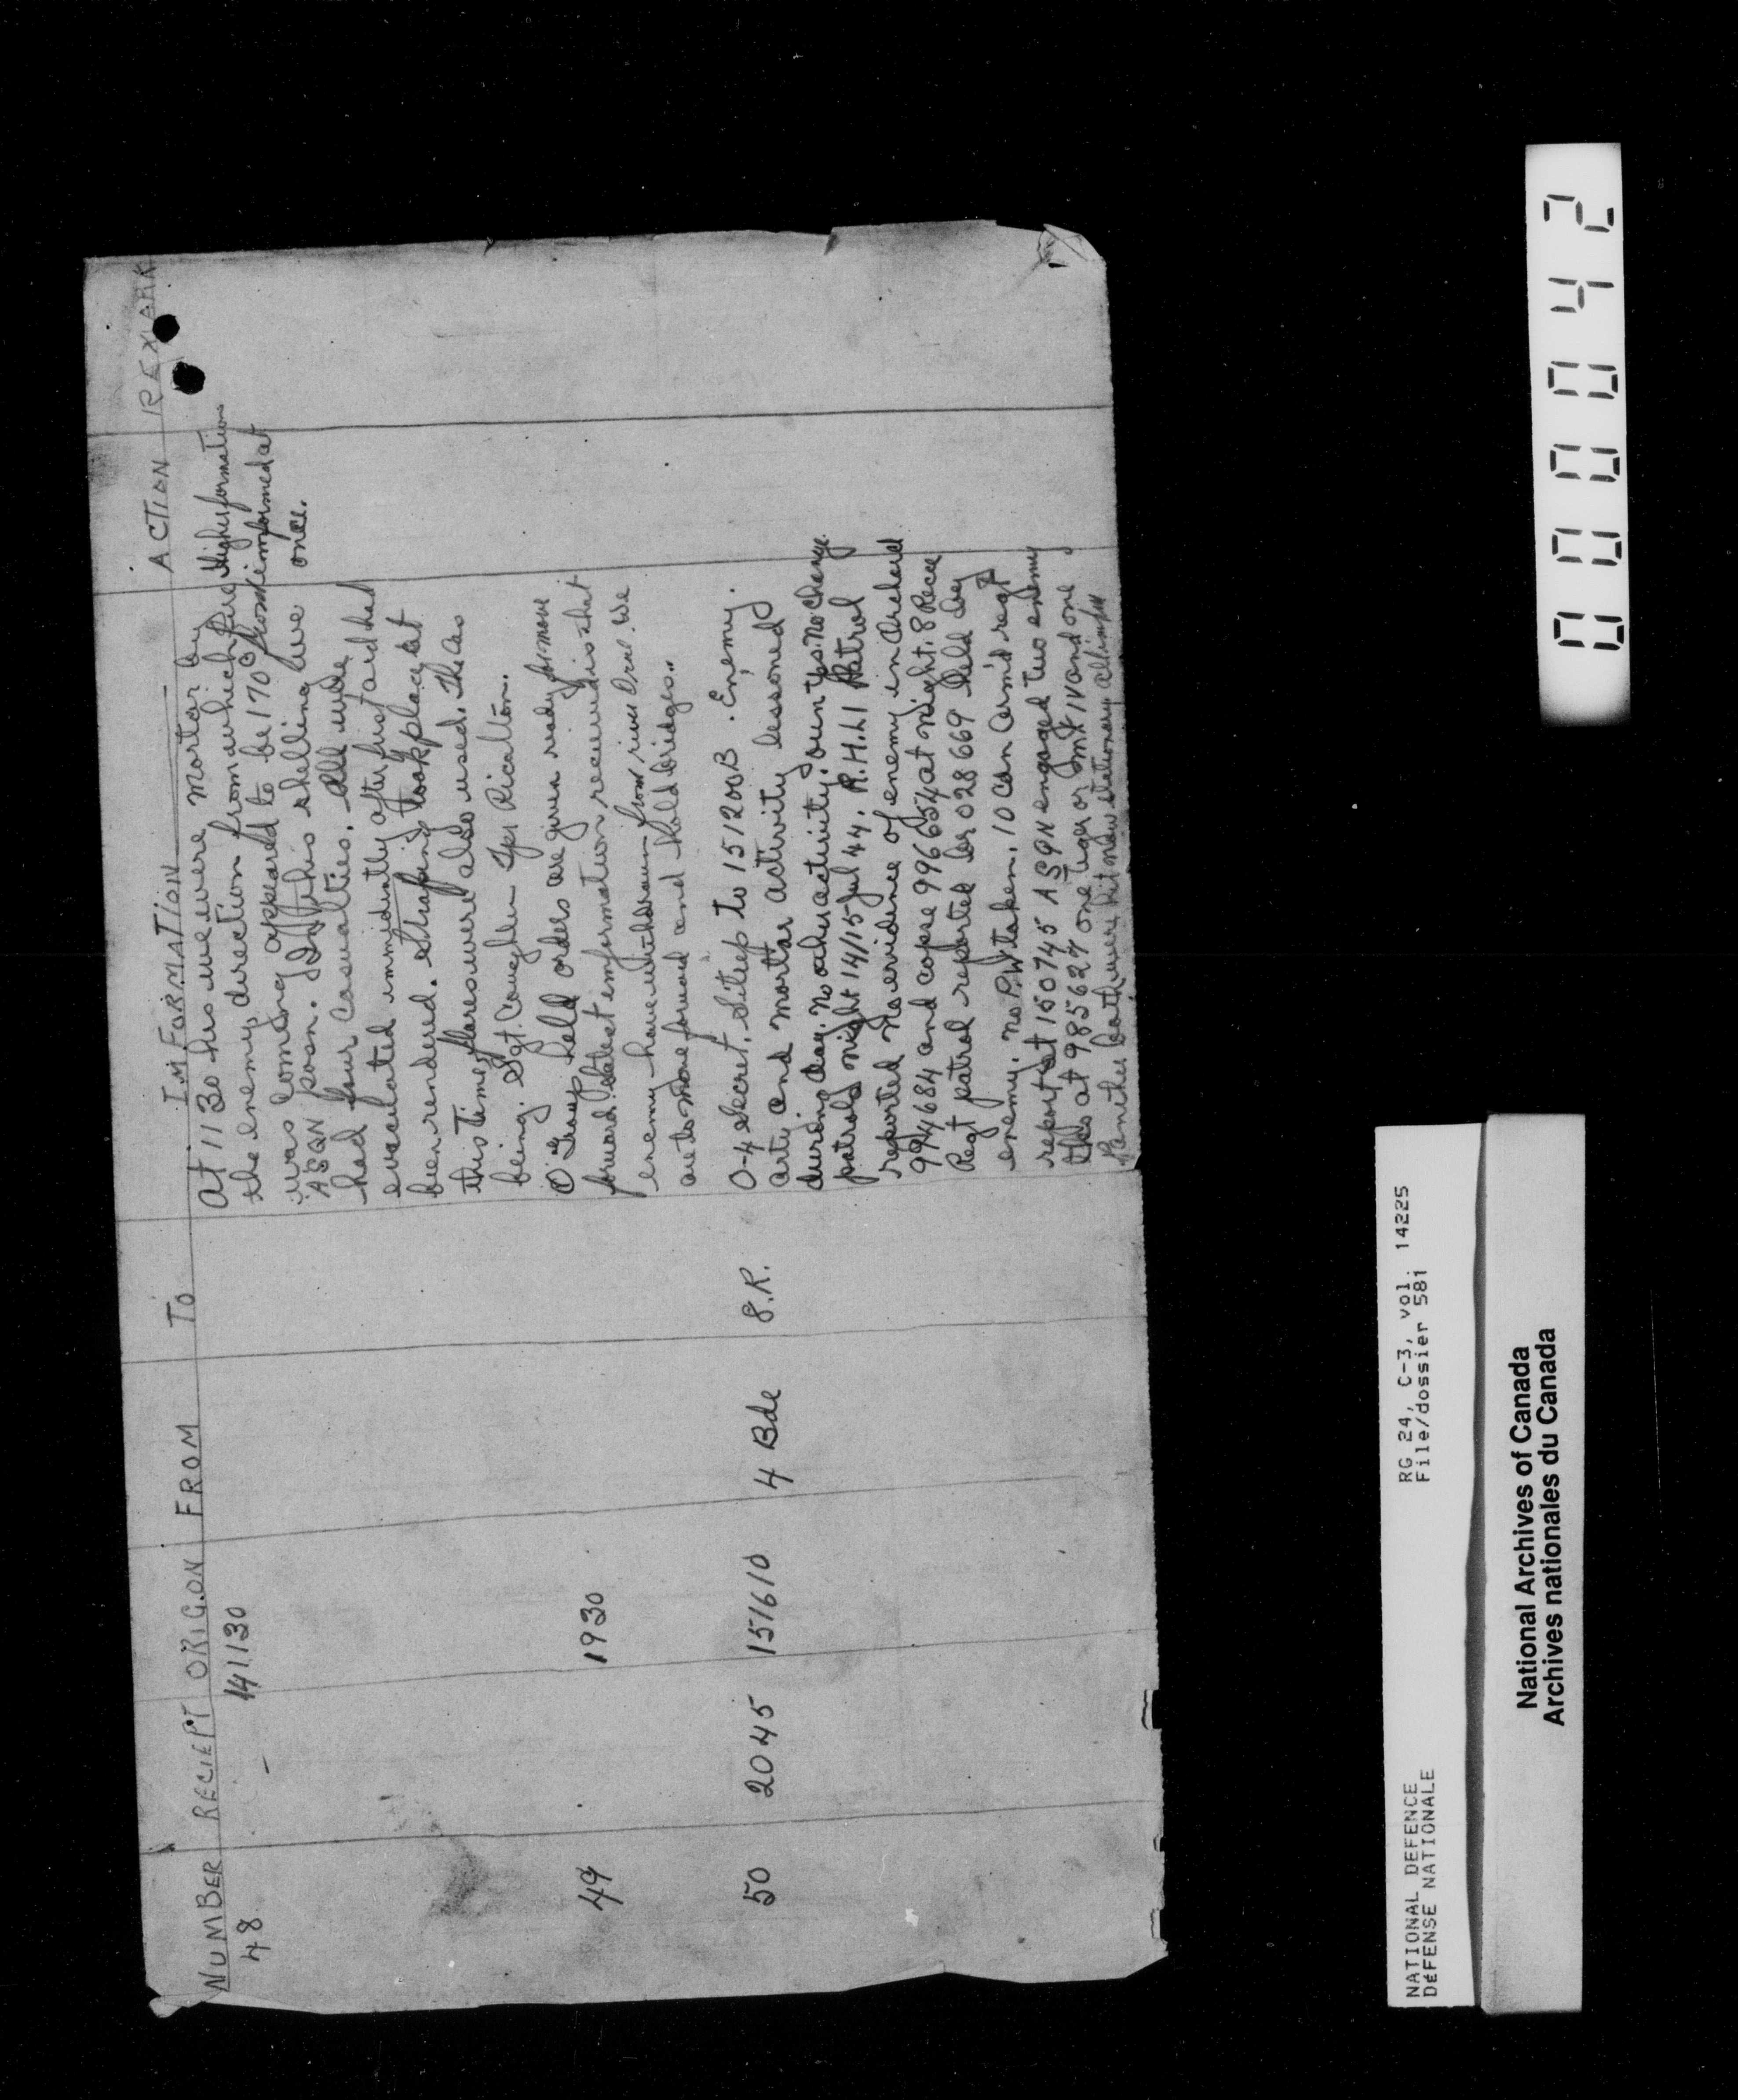 NUMBER RECIEPT ORIG.ON FROM TO INFORMATION ACTION REMARK
48 - 141130 At 1130 hrs we were mortar by Higher formation
the enemy, direction from which fire
was coming appeared to be 170° from informed at
A SQN posn. In this shelling we once.
had four casualties. All were
evacuated immidiatly after first aid had
been rendered. Strafing took place at
this time, flares were also used. The cas
being. Sgt. Coughlen Tpr Ricalton.
49 1930 O Group held orders are given ready for move
forward. Latest information received is that
enemy have withdrawn from river Orne. We
are to move forward and hold bridges..
50 2045 151610 4 Bde 8.R. O-4 Secret. Sitrep to 151200B. Enemy.
arty and mortar activity lessoned
during day. No other activity. Own tps. No change
patrols night 14/15 Jul 44. R.H.LI Patrol
reported no evidence of enemy in Orchard
994684 and copse 996654 at night. 8 Recce
Regt patrol reported les 028669 held by
enemy. No P.W taken. 10 Can Arm'd regt
report at 150745 A SQN engaged two enemy
tks at 985627 one tiger or mk IV and one
Panther both were hit now stationary all info
0000042
NATIONAL DEFENCE RG 24, C-3, vol. 14225
DÉFENSE NATIONALE File/dossier 581
National Archives of Canada
Archives nationales du Canada